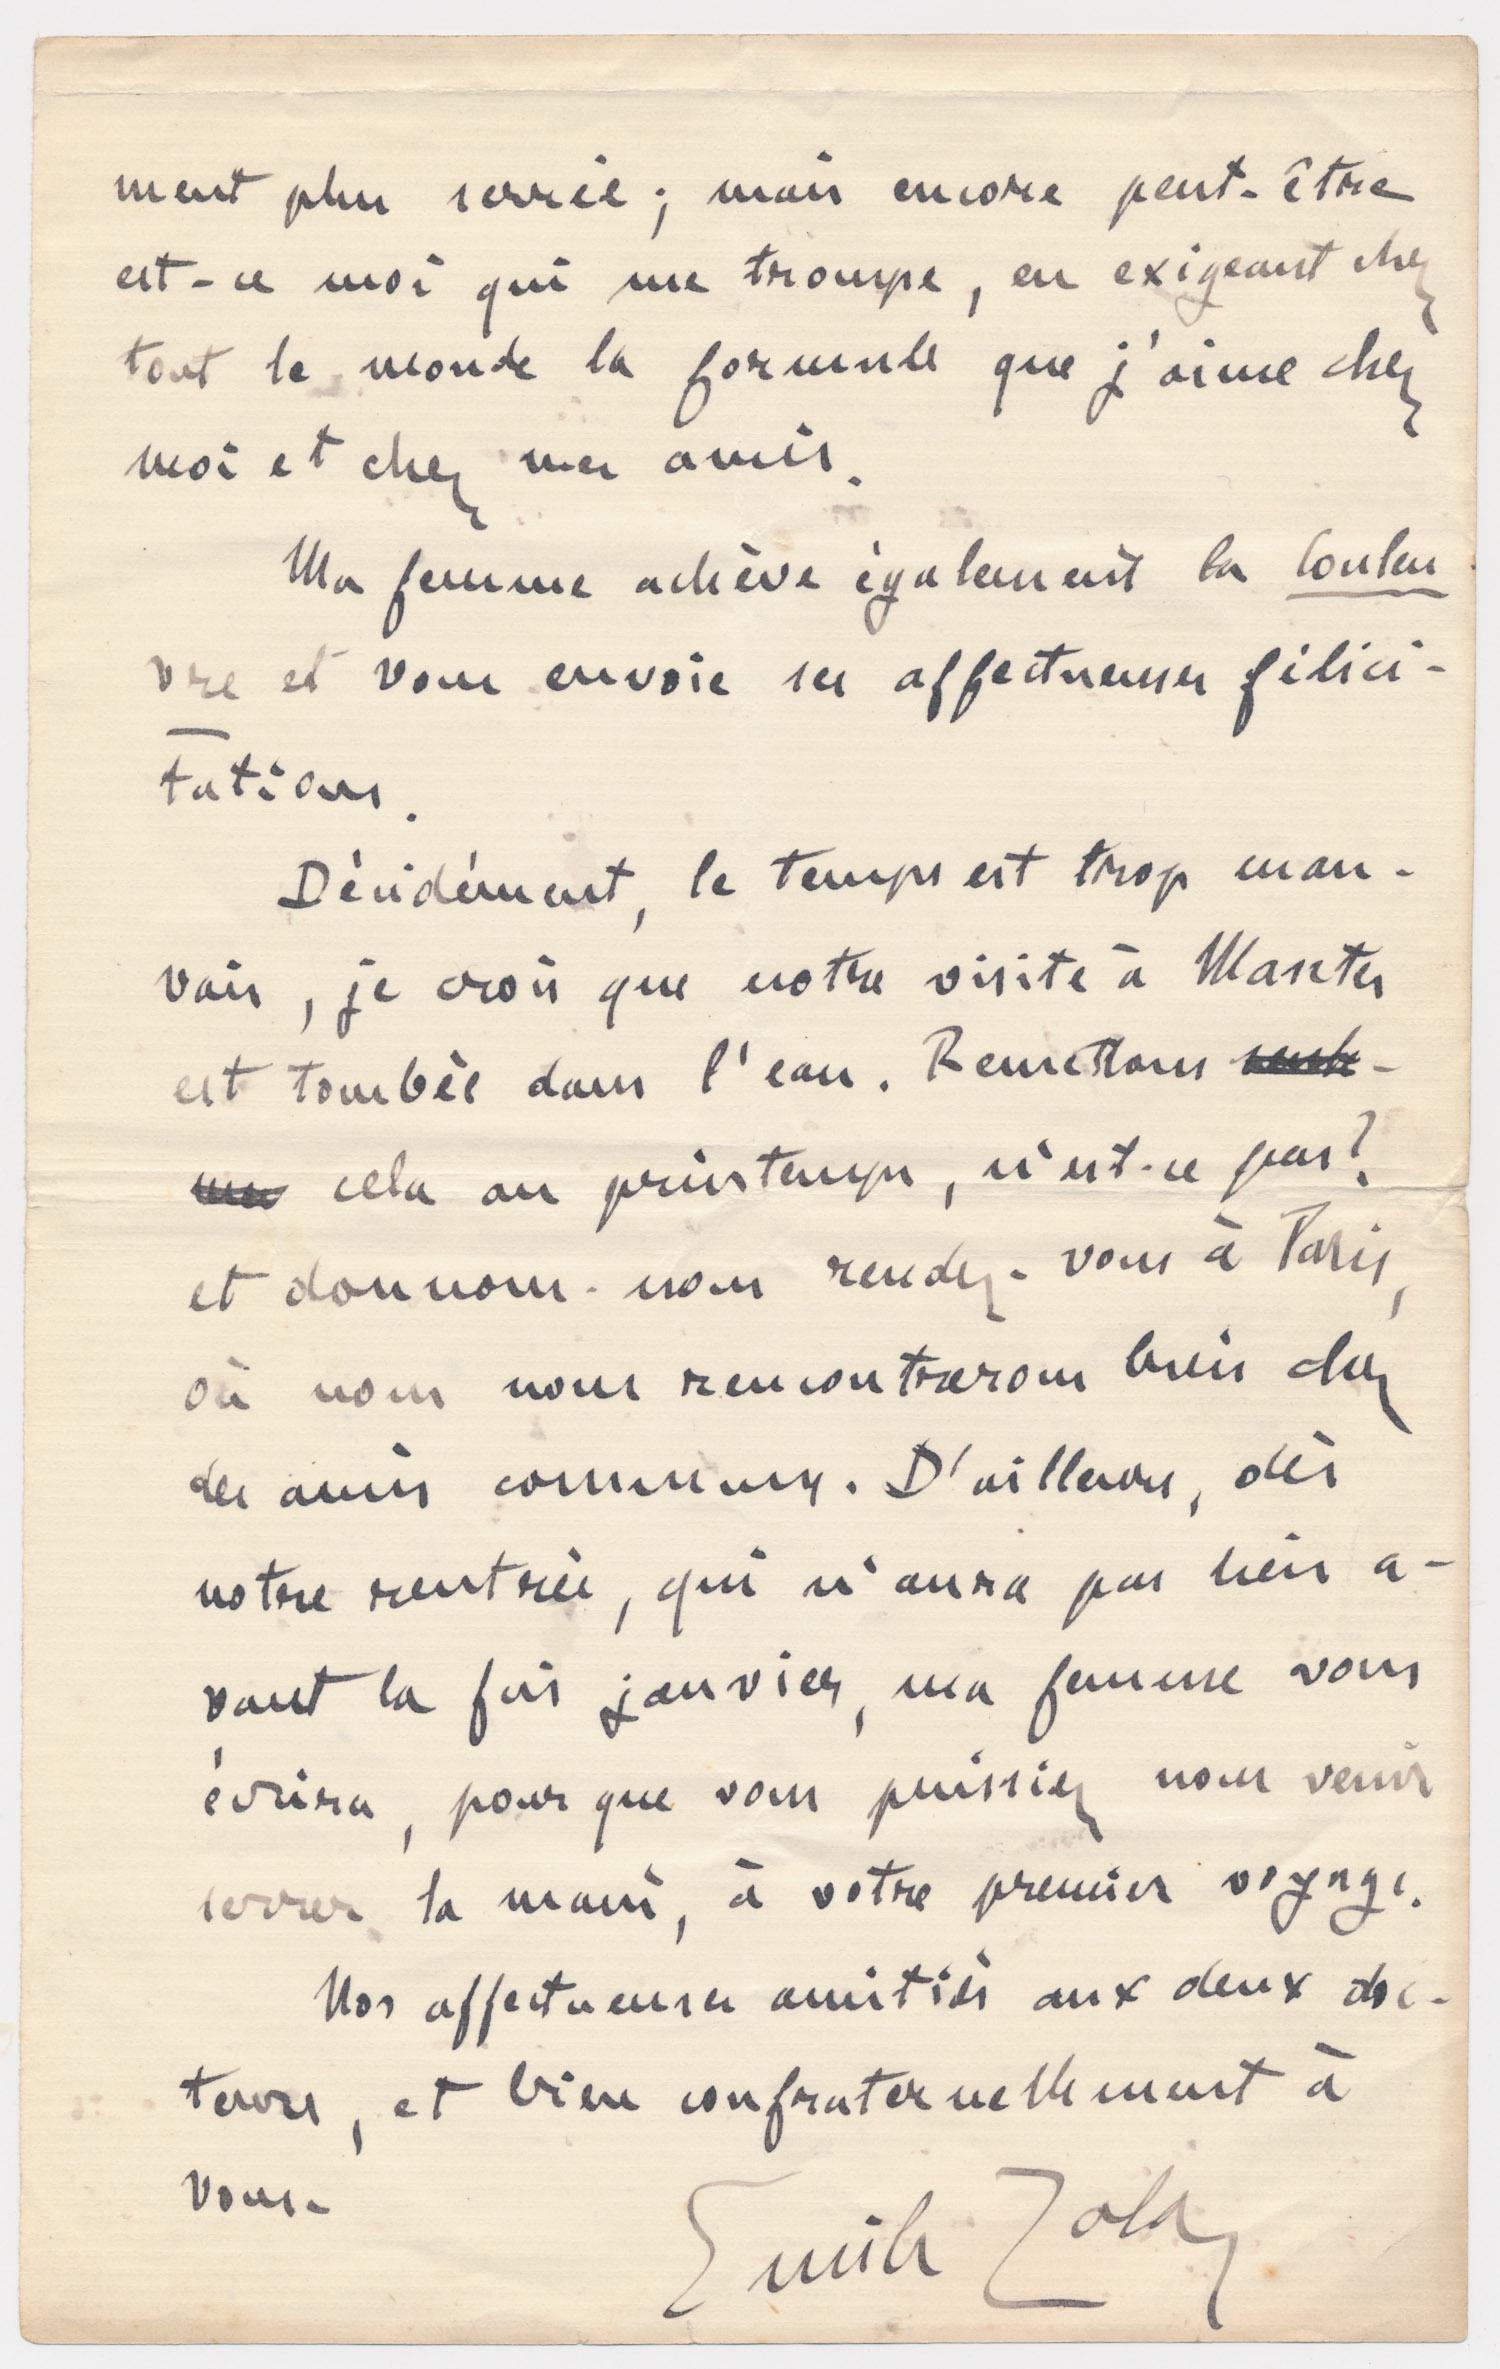 ment plus serrée ; mais encore peut-être
est-ce moi qui me trompe, en exigeant chez
tout le monde la formule que j'aime chez
moi et chez mes amis.
Ma femme achève également la Couleu
vre et vous envoie ses affectueuses félici-
tations.
Décidément, le temps est trop mau-
vais, je crois que notre visite à Mantes
est tombée dans l'eau. Remettons -
cela au printemps, n'est-ce pas?
et donnons-nous rendez-vous à Paris,
où nous nous rencontrerons bien chez
des amis communs. D'ailleurs, dès
notre rentrée, qui n'aura pas lieu a-
vant la fin janvier, ma femme vous
écrira, pour que vous puissiez nous venir
serrer la main, à votre premier voyage.
Nos affectueuses amitiés aux deux doc-
teurs, et bien confraternellement à
vous.
Emile Zola